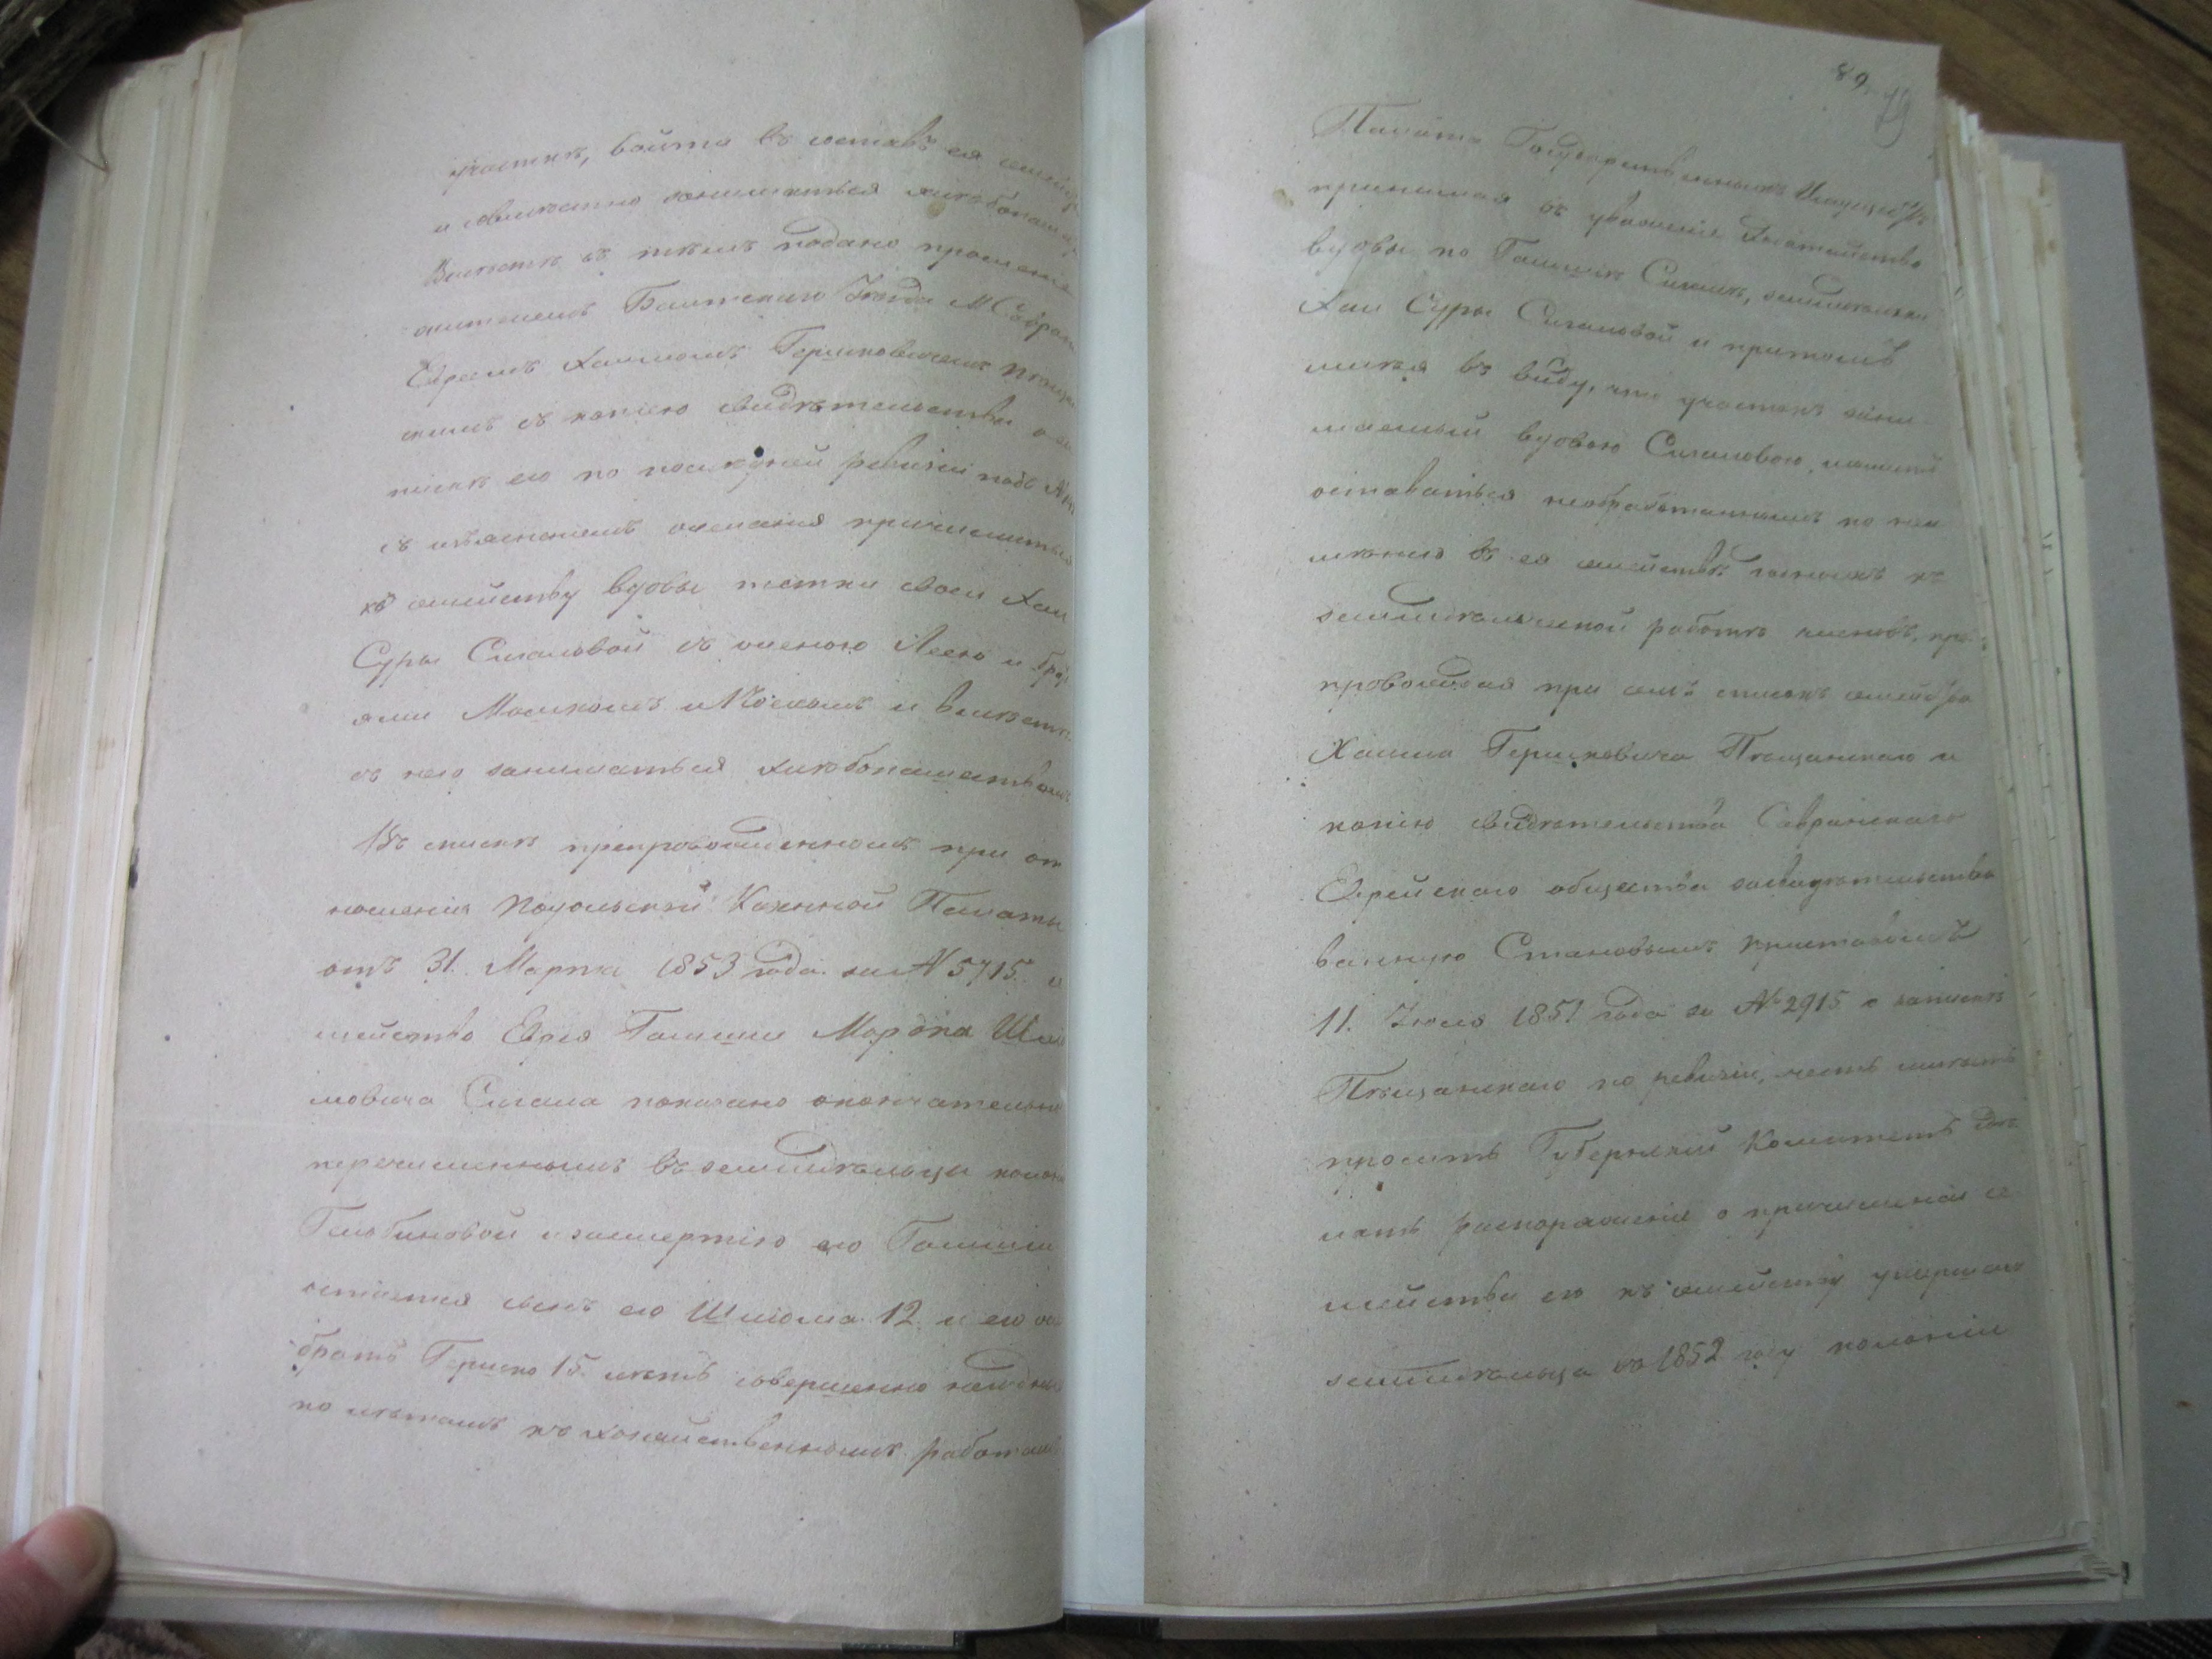 участкѣ, войти въ составъ ея семейства
и совмѣстно заниматься хлѣбопаш
Вмѣстѣ съ тѣмъ подано прошеніе
жителемъ Балтскаго Уѣзда М. Савран
Евреемъ Хаимомъ Гершковичемъ Пѣщан
скимъ съ копіею свидѣтельства о за
пискѣ его по послѣдней ревизіи подъ №
съ изъясненіемъ желанія причислиться
къ семейству вдовы тетки своей Хаи
Суры Сигаловой съ женою Леею и брат
ями Мошкомъ и Іоськомъ и вмѣстѣ
съ нею заниматься хлѣбопашествомъ
Въ спискѣ препровожденномъ при от
ношеніи Подольской Казенной Палаты
отъ 31. Марта 1853 года за № 5715. се
мейство Еврея Гамшии Мордка Шлі
мовича Сигала показано окончательно
перечисленнымъ въ земледѣльцы колон
и засмертію его Гамшии
остается сынъ его Шлiома 12. и его
братъ Гершко 15 лѣтъ совершенно
по лѣтамъ къ хозяйственнымъ работам
89 79
Палата Государственныхъ Имуществъ
принимая въ уваженіе ходатайство
вдовы по Гамшіи Сигалѣ, земледѣлки
Хаи Суры Сигаловой и притомъ
имѣя въ виду, что участокъ зани
маемый вдовою Сигаловою, можетъ
оставаться необработаннымъ по неи
мѣнію въ ея семействѣ годныхъ къ
земледѣльческой работѣ членовъ, пре
провождая при семъ списокъ семейства
Хаима Гершковича Пѣщанскаго и
копію свидѣтельства Савранскаго
Еврейскаго общества засвидѣтельство
ванную Становымъ Приставомъ
11. Іюля 1851 года за № 2915 о запискѣ
Пѣщанскаго по ревизіи, честь имѣетъ
просить Губернскій Комитетъ сдѣ
лать распоряженіе о причисленіи се
мейства его къ семейству умершаго
земледѣльца въ 1852 году колоніи